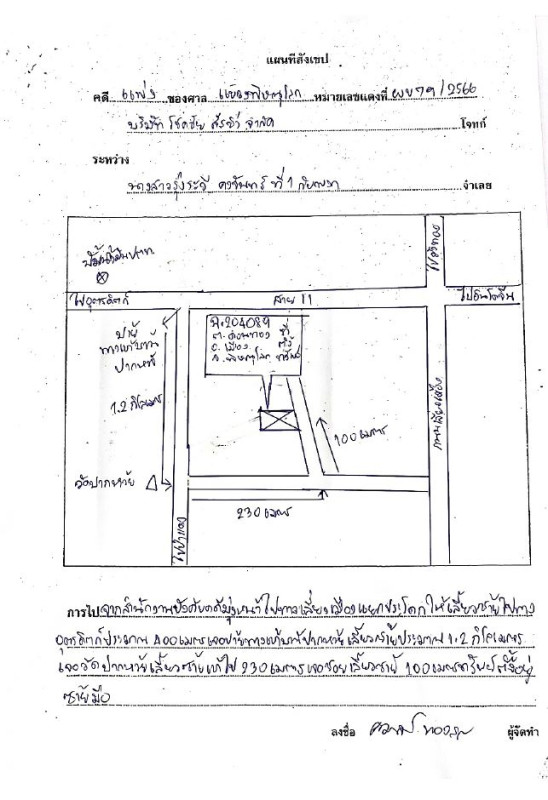 แผนที่สังเขป
คดี แพ่ง ของศาล แขวงพิษณุโลก หมายเลขแดงที่ ผบ79/2566
บริษัท โชคชัย จำกัด โจทก์
ระหว่าง
นางสาวรุ่งระวี ที่ 1 กับพวก จำเลย
ไปอุตรดิตถ์
สาย 11
ไปอินโดจีน
ไปวังทอง
ป้าย
ทางเข้าวัด
ปากหวาย
1.2 กิโลเมตร
ฉ.204089
ต.ดอนทอง
อ.เมือง
จ.พิษณุโลก
ที่
ตั้ง
ทรัพย์
100 เมตร
ถนนเลี่ยงเมือง
วัดปากหวาย
230 เมตร
การไป จากสำนักงานบังคับคดีมุ่งหน้าไปทางเลี่ยงเมืองแยกประโดกให้เลี้ยวซ้ายไปทาง
อุตรดิตถ์ประมาณ 400 เมตรเจอป้ายทางเข้าวัดปากหวายเลี้ยวซ้ายประมาณ 1.2 กิโลเมตร
เจอวัดปากหวายเลี้ยวซ้ายเข้าไป 230 เมตรเจอซอยเลี้ยวซ้าย 100 เมตรทรัพย์ตั้งอยู่
ซ้ายมือ
ลงชื่อ ผู้จัดทำ